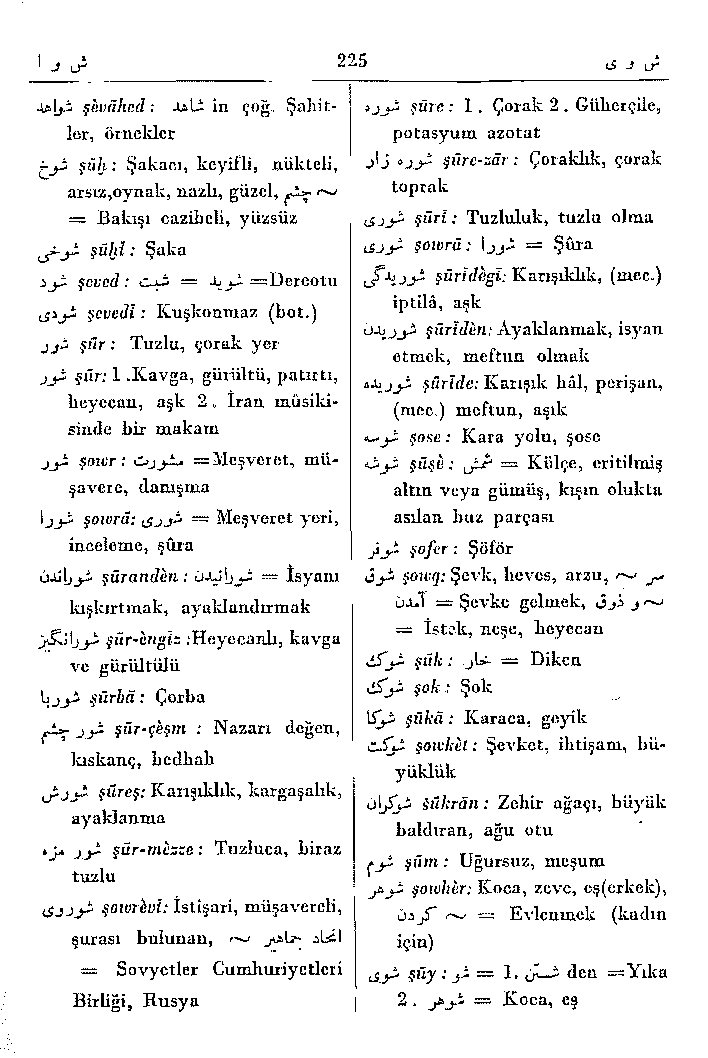 ش و ا
225
ش و ی
شواهد şèvāhed: شاهد in çoğ. Şahit-
ler, örnekler
شوخ şūḫ: Şakacı, keyifli, nükteli,
arsız,oynak, nazlı, güzel, چشم ~
= Bakışı cazibeli, yüzsüz
شوخی şūḫī: Şaka
شود şeved: شبت = شوید =Dereotu
شودی şevedī: Kuşkonmaz (bot.)
شور şūr: Tuzlu, çorak yer
شور şūr: 1.Kavga, gürültü, patırtı,
heyecan, aşk 2. İran mûsiki-
sinde bir makam
شور şowr: مشورت =Meşveret, mü-
şavere, danışma
شورا şowrā: شوری = Meşveret yeri,
inceleme, şûra
شوراندن şūrandèn: شورانیدن = İsyanı
kışkırtmak, ayaklandırmak
شورانگیز şūr-èngīz:Heyecanlı, kavga
ve gürültülü
شوربا şūrbā: Çorba
شور چشم şūr-çèşm : Nazarı değen,
kıskanç, bedhah
شورش şūreş: Karışıklık, kargaşalık,
ayaklanma
شور مزه şūr-mèzze: Tuzluca, biraz
tuzlu
شوروی şowrèvī: İstişari, müşavereli,
şurası bulunan, ~ اتحاد جماهیر
= Sovyetler Cumhuriyetleri
Birliği, Rusya
شوره şūre: 1. Çorak 2. Güherçile,
potasyum azotat
شوره زار şūre-zār: Çoraklık, çorak
toprak
شوری şūrī: Tuzluluk, tuzlu olma
شوری şowrā: شورا = Şûra
شوریدگی şūrīdègī: Karışıklık, (mec.)
iptilâ, aşk
شوریدن şūrīdèn: Ayaklanmak, isyan
etmek, meftun olmak
شوریده şūrīde: Karışık hâl, perişan,
(mec.) meftun, aşık
شوسه şose: Kara yolu, şose
شوشه şūşè: شمش = Külçe, eritilmiş
altın veya gümüş, kışın olukta
asılan buz parçası
شوفر şofer: Şöför
شوق şowq: Şevk, heves, arzu, ~ سر
آمدن = Şevke gelmek, ~ و ذوق
= İstek, neşe, heyecan
شوک şūk: خار = Diken
شوک şok: Şok
شوکا şūkā: Karaca, geyik
شوکت şowkèt: Şevket, ihtişam, bü-
yüklük
شوکران šūkrān: Zehir ağaçı, büyük
baldıran, ağu otu
شوم şūm: Uğursuz, meşum
شوهر şowhèr: Koca, zevc, eş(erkek),
کردن ~ = Evlenmek (kadın
için)
شوی şūy: شو = 1. شستن den =Yıka
2. شوهر = Koca, eş